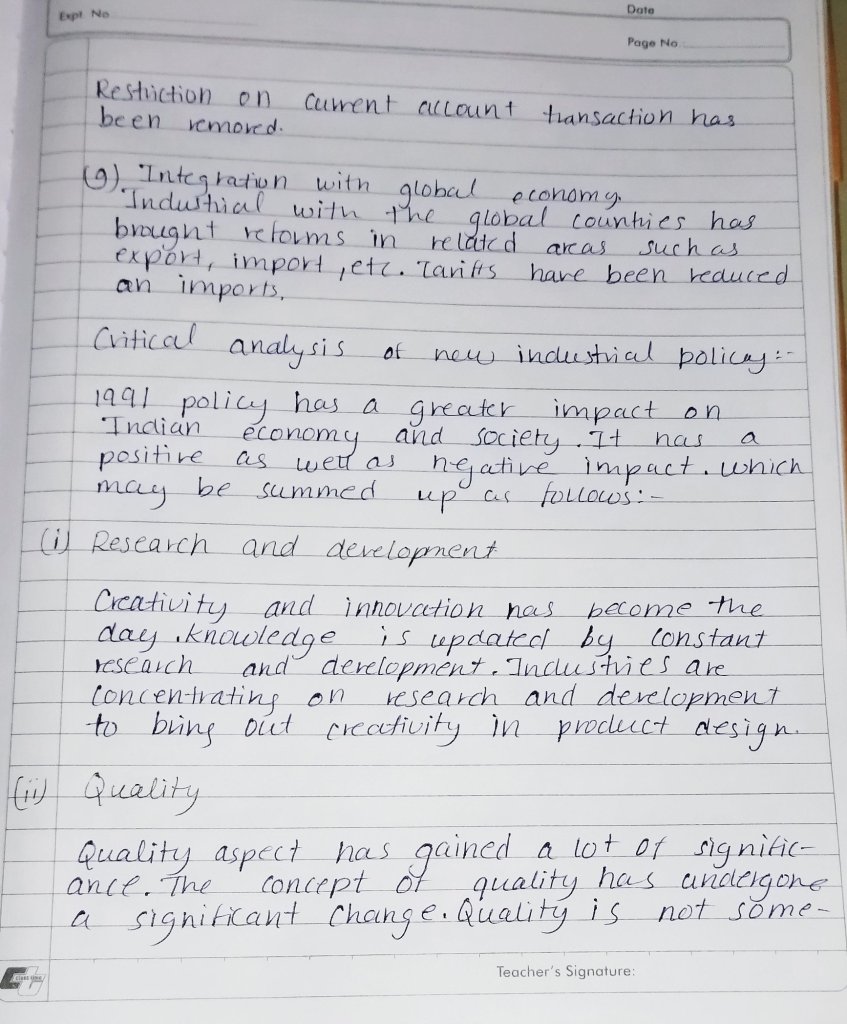 Expt. No
Date
Page No.
Restriction on current account transaction has
been removed.
(9) Integration with global economy.
Industrial with the global countries has
brought reforms in related areas such as
export, import, etc. Tariffs have been reduced
an imports.
Critical analysis of new industrial policy:-
1991 policy has a greater impact on
Indian economy and society. It has a
positive as well as negative impact. which
may be summed up as follows:-
(i) Research and development
Creativity and innovation has become the
day. knowledge is updated by constant
research and development. Industries are
concentrating on research and development
to bring out creativity in product design.
(ii) Quality
Quality aspect has gained a lot of signific-
ance. The concept of quality has undergone
a significant change. Quality is not some-
Teacher's Signature: